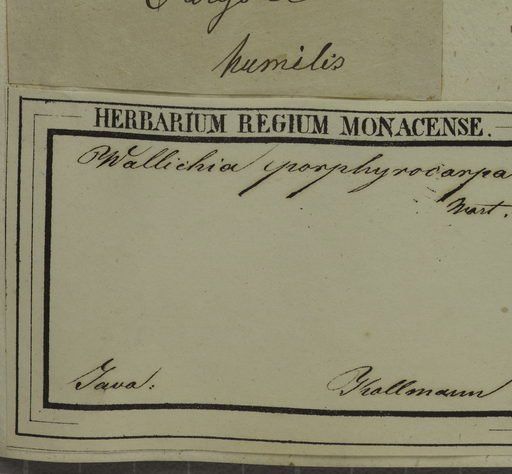 humilis
HERBARIUM REGIUM MONACENSE.
Wallichia porphyrocarpa
Mart.
Java.
Kollmann